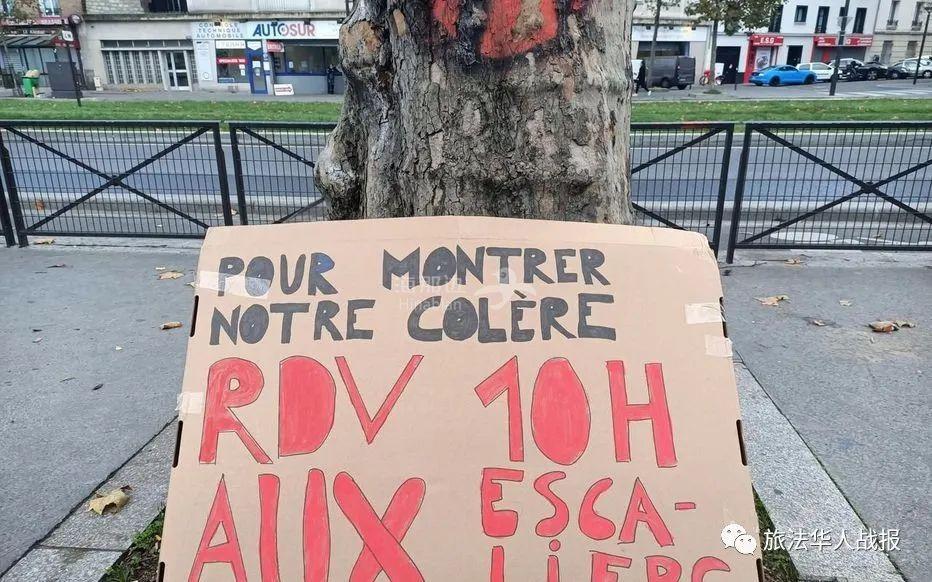 CONTRÔLE
TECHNIQUE
AUTOMOBILE
AUTOSUR
ESG
POUR MONTRER
NOTRE COLÈRE
RDV 10H
AUX ESCA-
LIERS
海那边
Hinabian
旅法华人战报